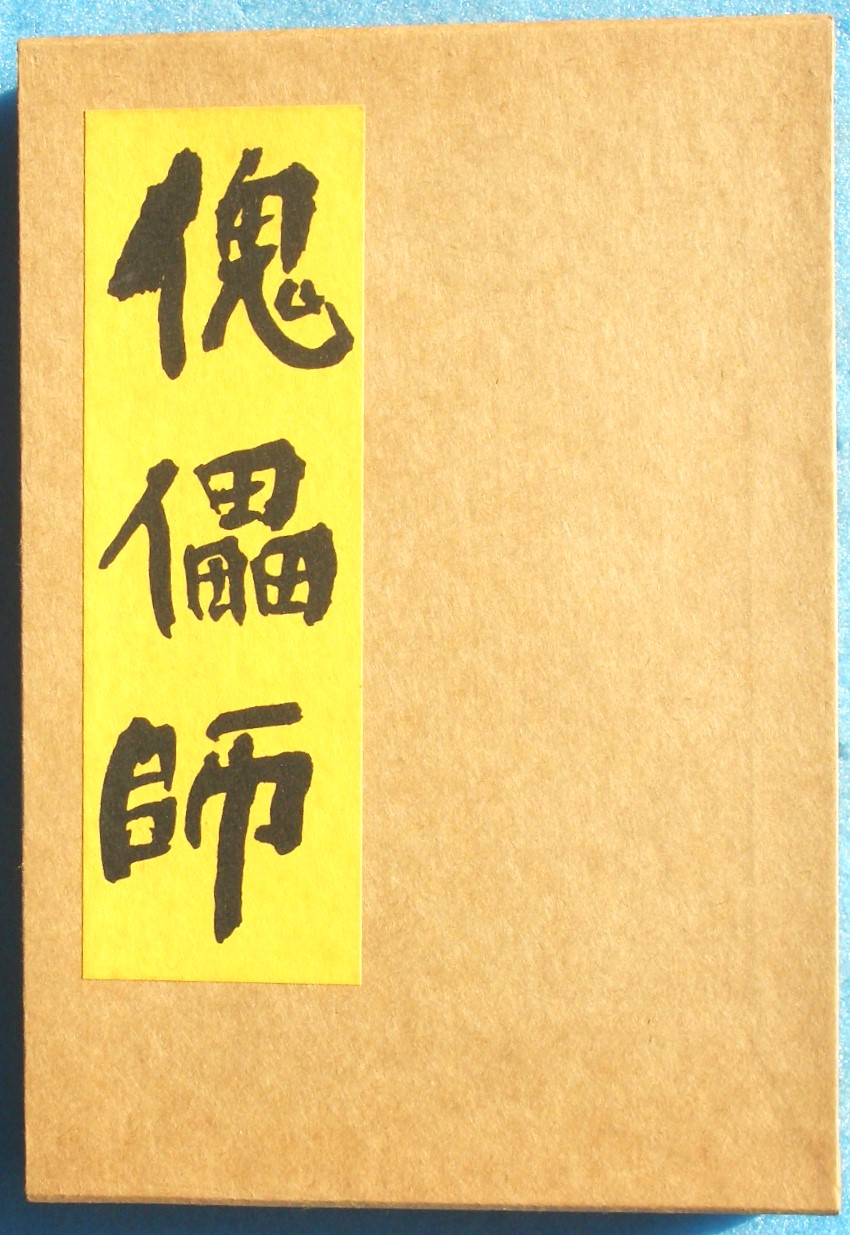 傀儡師